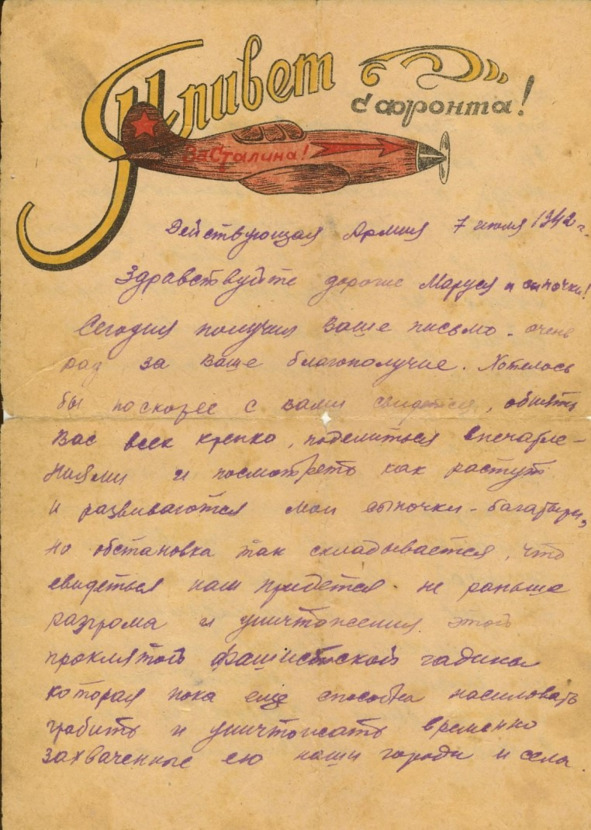 Привет
с фронта!
За Сталина!
Действующая Армия 7 июля 1942 г.
Здравствуйте дорогие Маруся и сыночки!
Сегодня получил Ваше письмо. очень
рад за Ваше благополучие. Хотелось
бы поскорее с вами свидется, обнять
Вас всех крепко, поделиться впечатле-
ниями и посмотреть как растут
и развиваются мои сыночки-багатыри,
но обстановка так складывается, что
свидеться нам придется не раньше
разгрома и уничтожения этой
проклятой фашистской гадины
которая пока еще способна насиловать
грабить и уничтожать временно
захваченные ею наши города и села